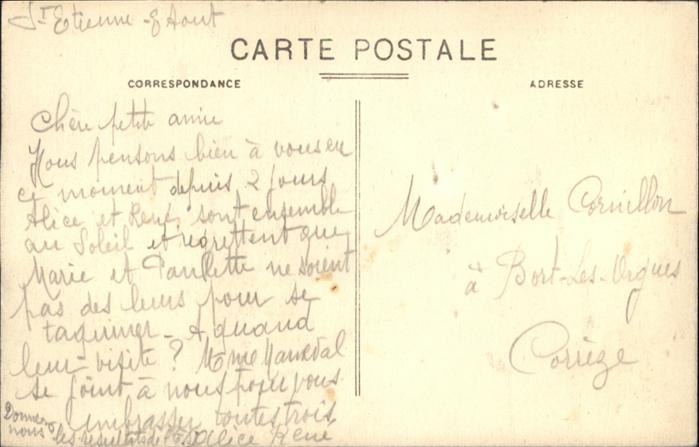 St Etienne 8 Aout
CARTE POSTALE
CORRESPONDANCE
Chère petite amie
Nous pensons bien à vous en
ce moment depuis 2 jours
Alice et René sont ensemble
au Soleil et regrettent que
Marie et Paulette ne soient
pas des leurs pour se
taquiner - A quand
leur visite ? Mme
se joint à nous pour vous
embrasser toutes trois
Alice René
Donnez
nous les résultats de
ADRESSE
Mademoiselle Cornillon
à Bort-Les-Orgues
Corrèze